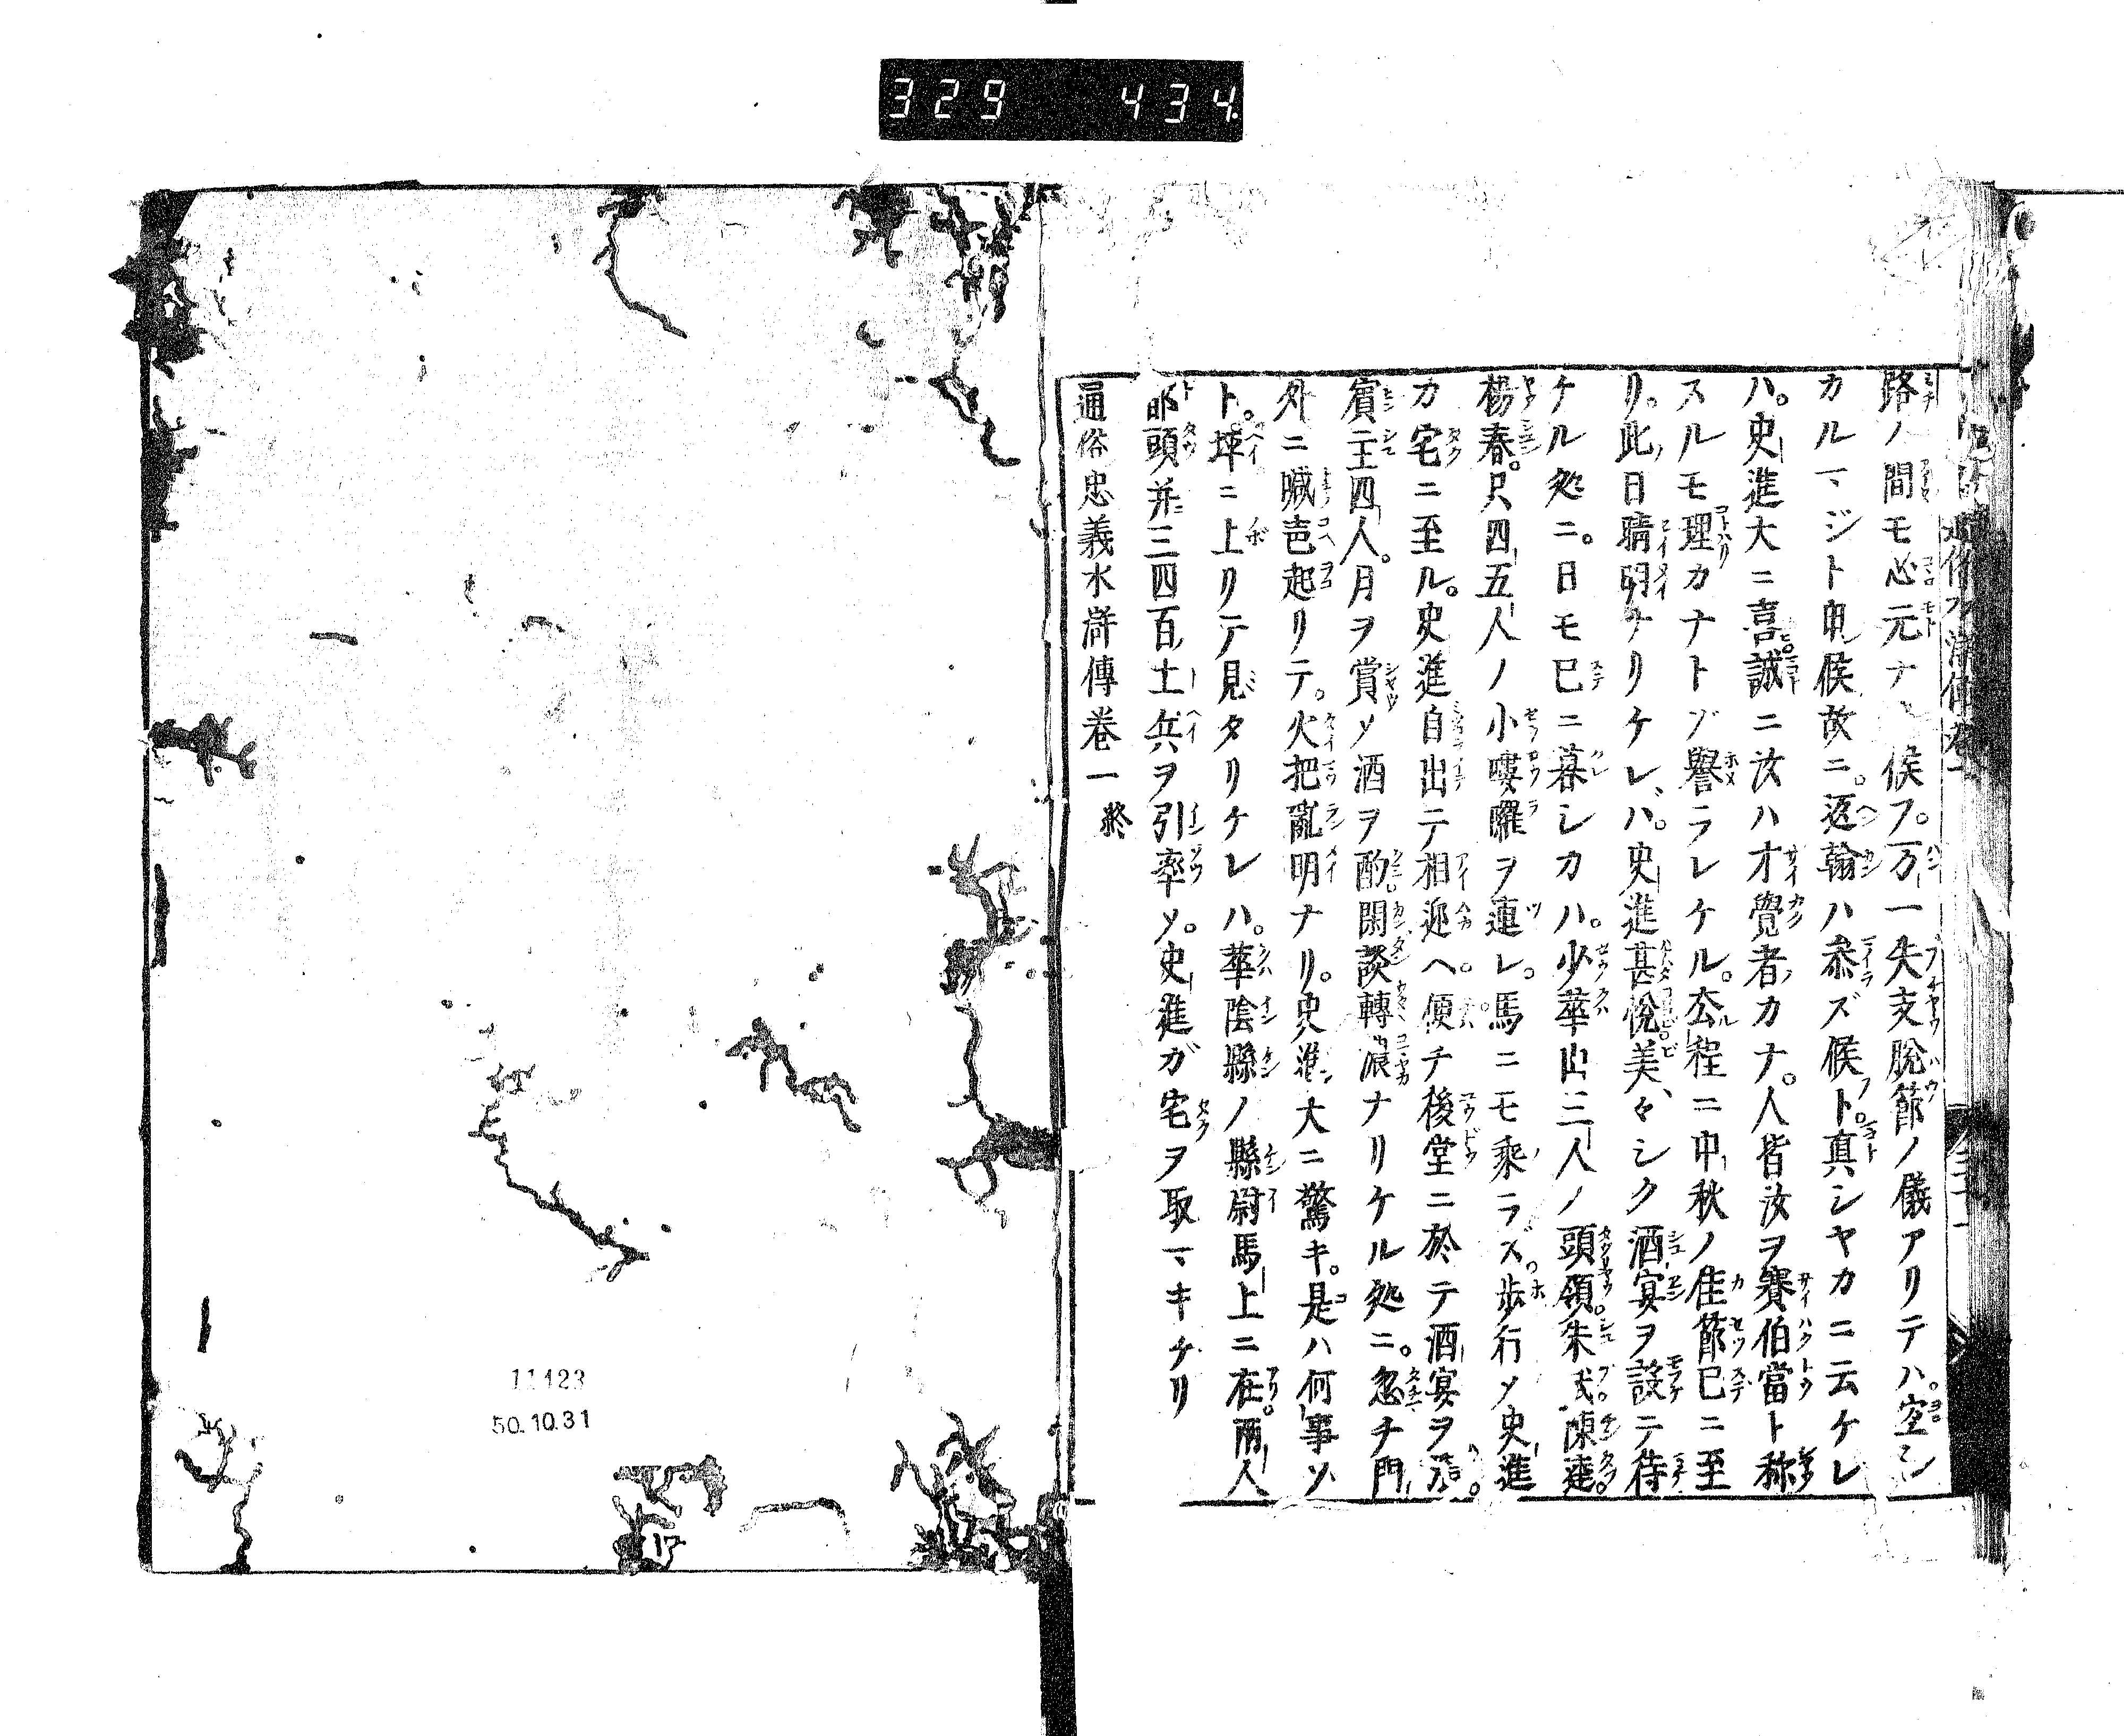 329 434
路ノ間モ心元ナ候フ。万一失支脱節ノ儀アリテハ。空シ
カルマジト申候故ニ。返翰ハ参ズ候フト。真シヤカニ云ケレ
ハ。史進大ニ喜。誠ニ汝ハ才覺者カナ。人皆汝ヲ賽伯當ト称
スルモ理カナトゾ譽ラレケル。去程ニ中秋ノ佳節已ニ至
リ。此日晴明ナリケレハ。史進甚悦美々シク酒宴ヲ設テ待
チル処ニ。日モ已ニ暮シカハ。少華山三人ノ頭領。朱武。陳達。
楊春。只四五人ノ小嘍囉ヲ連レ。馬ニモ乘ラズ。歩行ソ史進
カ宅ニ至ル。史進自出テ相迎ヘ。便チ後堂ニ於テ酒宴ヲ
賓主四人。月ヲ賞ソ酒ヲ酌。閑談轉濃ナリケル処ニ。忽チ門
外ニ喊声起リテ。火把亂明ナリ。史進大ニ驚キ。是ハ何事ソ
ト。塀ニ上リテ見タリケレハ。華陰縣ノ縣尉馬上ニ在。兩人
都頭并三四百土兵ヲ引率ソ。史進ガ宅ヲ取マキケリ
通俗忠義水滸傳巻一終
11423
50.10.31